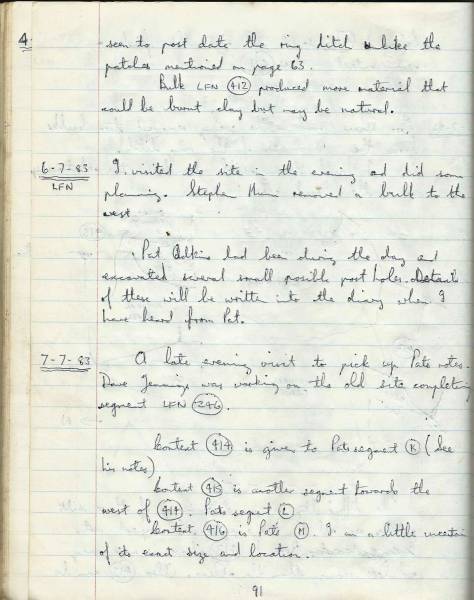 4 seem to post date the ring ditch unlike the
patches mentioned on page 63.
Bulk LFN 412 produced more material that
could be burnt clay but may be natural.
6-7-83 I visited the site in the evening and did some
LFN planning. Stephen removed a bulk to the
west
Pat Adkins had been during the day and
excavated several small posible post holes. Details
of these will be written into the diary when I
have heard from Pat.
7-7-83 A late evening visit to pick up Pats notes.
Dave Jennings was working on the old site completing
segment LFN 246.
Context 414 is given to Pats segment K (See
his notes)
Context 415 is another segment towards the
west of 414. Pats segment L
Context 416 is Pats M. I am a little uncertain
of its exact size and location.
91